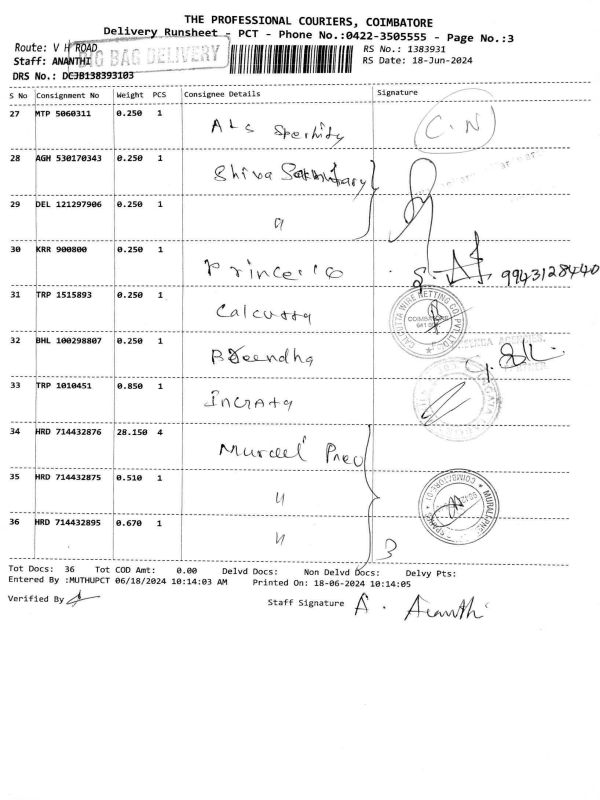 THE PROFESSIONAL COURIERS, COIMBATORE
Delivery Runsheet - PCT - Phone No.:0422-3505555 - Page No.:3
Route: V H ROAD
RS No.: 1383931
BIG BAG DELIVERY
Staff: ANANTHI
RS Date: 18-Jun-2024
DRS No.: DCJB138393103
S No Consignment No Weight PCS Consignee Details Signature
27 MTP 5060311 0.250 1 ALS C.N
28 AGH 530170343 0.250 1 Shiva
29 DEL 121297906 0.250 1 "
30 KRR 900800 0.250 1 9943128440
31 TRP 1515893 0.250 1 Calcutta
CALCUTTA WIRE NETTING CO. PVT. LTD.
COIMBATORE
32 BHL 100298807 0.250 1
33 TRP 1010451 0.850 1
34 HRD 714432876 28.150 4
35 HRD 714432875 0.510 1 "
36 HRD 714432895 0.670 1 " 3
Tot Docs: 36 Tot COD Amt: 0.00 Delvd Docs: Non Delvd Docs: Delvy Pts:
Entered By :MUTHUPCT 06/18/2024 10:14:03 AM Printed On: 18-06-2024 10:14:05
Verified By
Staff Signature A. Ananthi